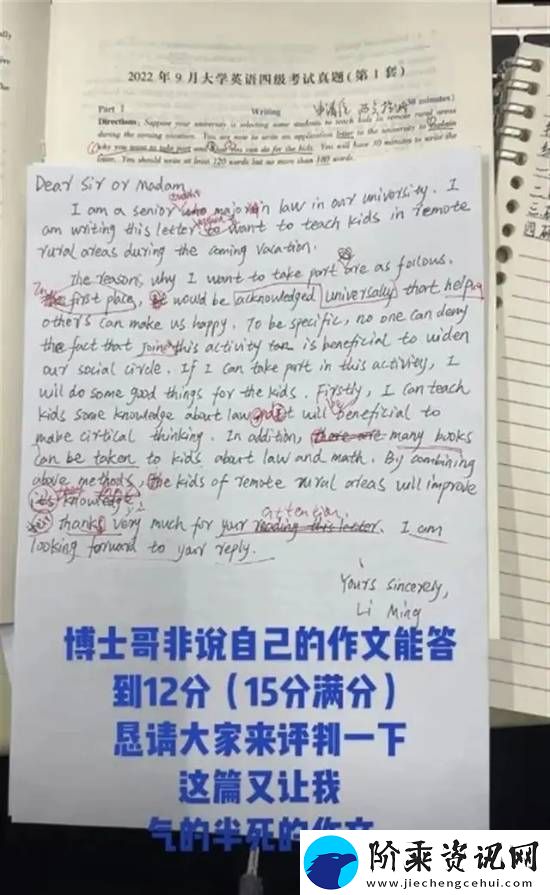 2022年9月大学英语四级考试真题(第1套)
Part I Writing (30 minutes)
Directions: Suppose your university is selecting some students to teach kids in remote rural areas
during the coming vacation. You are now to write an application letter to the university to explain
why you want to take part and what you can do for the kids. You will have 30 minutes to write the
letter. You should write at least 120 words but no more than 180 words.
Dear Sir or Madam
I am a senior who major in law in our university. I
am writing this letter to want to teach kids in remote
rural areas during the coming vacation.
The reasons why I want to take part are as follows.
The first place, would be acknowledged universally that help
others can make us happy. To be specific, no one can deny
the fact that join this activity is beneficial to widen
our social circle. If I can take part in this activity, I
will do some good things for the kids. Firstly, I can teach
kids some knowledge about law and it will beneficial to
make cirtical thinking. In addition, there are many books
can be taken to kids about law and math. By combining
above methods, the kids of remote rural areas will improve
its knowledge.
attention
thanks very much for your reading this letter. I am
looking forward to your reply.
Yours sincerely,
Li Ming
博士哥非说自己的作文能答
到12分(15分满分)
恳请大家来评判一下
这篇又让我
气的半死的作文
阶乘资讯网
www.jiechengcehui.com